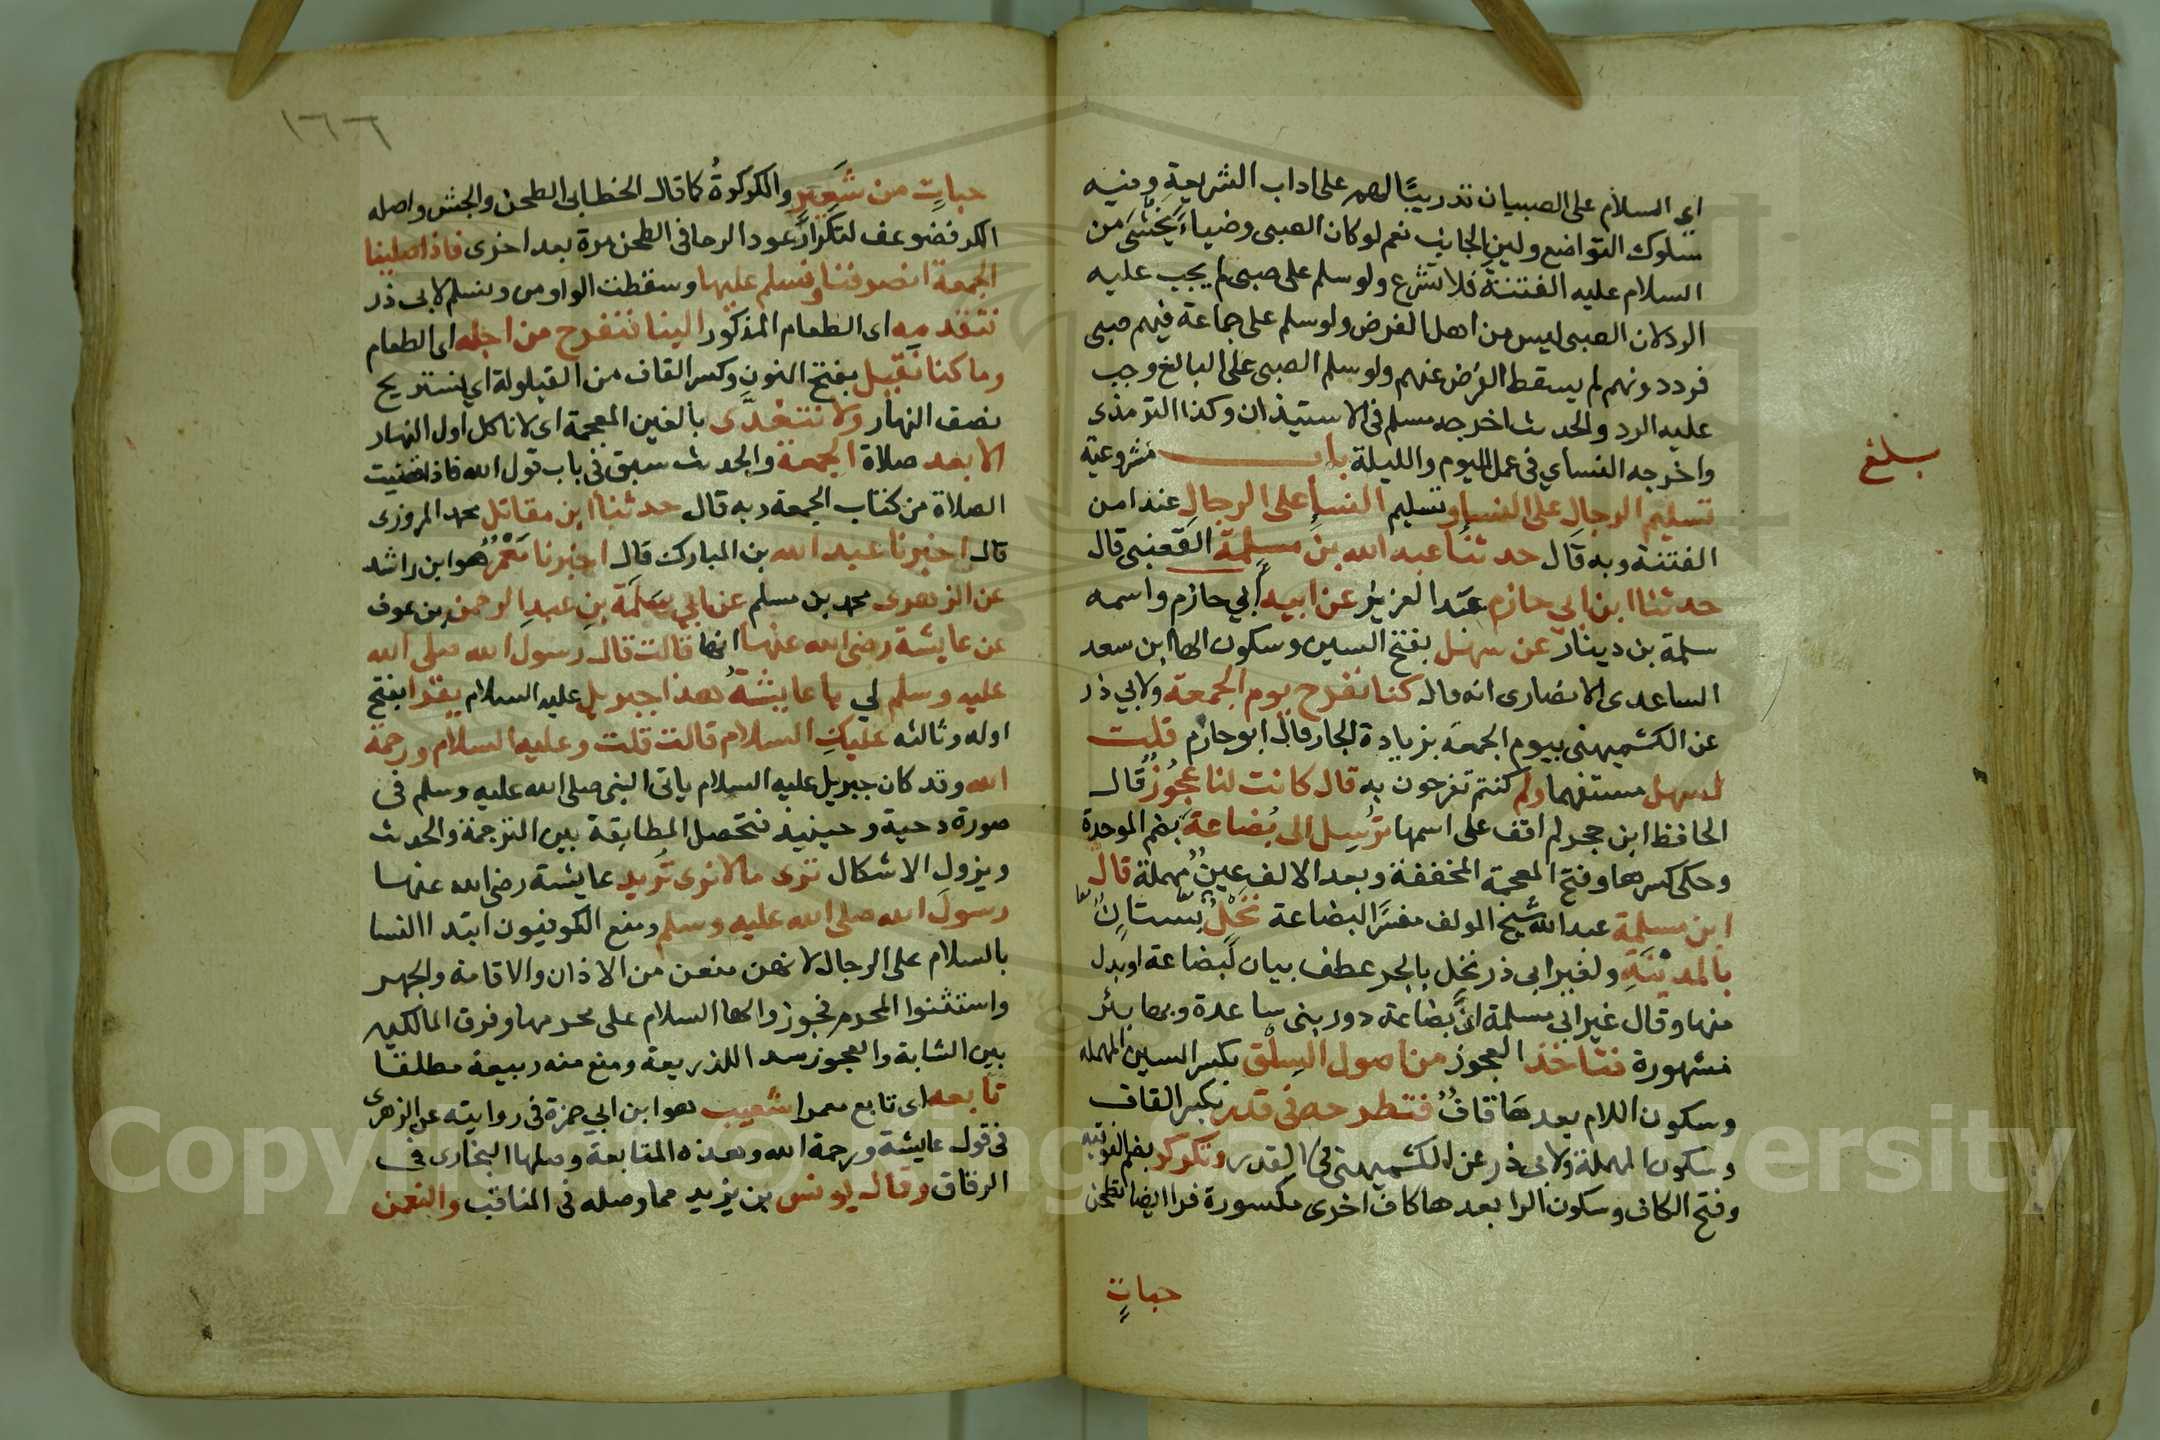 اي السلام على الصبيان تدريبًا لهم على اداب الشريعة وفيه
سلوك التواضع ولين الجانب نعم لو كان الصبي وضياء يخشى من
السلام عليه الفتنة فلا تشرع ولو سلم على صبي لم يجب عليه
الرد لان الصبي ليس من اهل الفرض ولو سلم على جماعة فيهم صبى
فرد دونهم لم يسقط الفرض عنهم ولو سلم الصبى على البالغ وجب
عليه الرد والحديث اخرجه مسلم فى الاستيذان وكذا الترمذى
واخرجه النساي فى عمل اليوم والليلة باب مشروعية
بلغ
تسليم الرجال على النساء وتسليم النساء على الرجال عند امن
الفتنة وبه قال حدثنا عبد الله بن مسلمة القعنبى قال
حدثنا ابن ابي حازم عبد العزيز عن ابيه ابي حازم واسمه
سلمة بن دينار عن سهل بفتح السين وسكون الها ابن سعد
الساعدى الانصارى انه قال كنا نفرح يوم الجمعة ولابي ذر
عن الكشميهنى بيوم الجمعة بزيادة الجار قال ابو حازم قلت
لسهل مستفهما ولم كنتم تفرحون به قال كانت لنا عجوز قال
الحافظ ابن حجر لم اقف على اسمها ترسل الى بضاعة بضم الموحدة
وحكى كسرها وفتح المعجمة المخففة وبعد الالف عين مهملة قال
ابن مسلمة عبد الله شيخ المولف مفسرا لبضاعة نخل بستان
بالمدينة ولغير ابى ذر نخل بالجر عطف بيان لبضاعة او بدل
منها وقال غير ابي مسلمة ان بضاعة دور بنى ساعدة وبها بئر
مشهورة فتاخذ العجوز من اصول السلق بكسر السين المهمله
وسكون اللام بعدها قاف فتطرحه فى قدر بكسر القاف
وسكون المهملة ولابى ذر عن الكشميهنى فى القدر وتكركر بضم الفوقيه
وفتح الكاف وسكون الرا بعدها كاف اخرى مكسورة فرا ايضا تطحن
حبات
١٦٦
حبات من شعير والكركرة كما قال الخطابى الطحن والجش واصله
الكر فضوعف لتكرار عود الرحا فى الطحن مرة بعد اخرى فاذا صلينا
الجمعة انصرفنا ونسلم عليها وسقطت الواو من ونسلم لابى ذر
فتقدمه اى الطعام المذكور الينا فنفرح من اجله اى الطعام
وما كنا نقيل بفتح النون وكسر القاف من القيلولة اي نستريح
نصف النهار ولا نتغدى بالغين المعجمة اى لا ناكل اول النهار
الا بعد صلاة الجمعة والحديث سبق فى باب قول الله فاذا قضيت
الصلاة من كتاب الجمعة وبه قال حدثنا ابن مقاتل محمد المروزى
قال اخبرنا عبد الله بن المبارك قال اخبرنا معمر هو ابن راشد
عن الزهرى محمد بن مسلم عن ابي سلمة بن عبد الرحمن بن عوف
عن عايشة رضى الله عنها انها قالت قال رسول الله صلى الله
عليه وسلم لي يا عايشة هذا جبريل عليه السلام يقرا بفتح
اوله وثالثه عليك السلام قالت قلت وعليه السلام ورحمة
الله وقد كان جبريل عليه السلام ياتى النبى صلى الله عليه وسلم فى
صورة دحية وحينيذ فتحصل المطابقة بين الترجمة والحديث
ويزول الاشكال ترى ما لا نرى تريد عايشة رضى الله عنها
رسول الله صلى الله عليه وسلم ومنع الكوفيون ابتدا النسا
بالسلام على الرجال لانهن منعن من الاذان والاقامة والجهر
واستثنوا المحرم فجوزوا لها السلام على محرمها وفرق المالكيه
بين الشابة والعجوز سدا للذريعة ومنع منه ربيعة مطلقا
تابعه اى تابع معمرا شعيب هو ابن ابي حمزة فى روايته عن الزهرى
فى قول عايشة ورحمة الله وهذه المتابعة وصلها البخارى فى
الرقاق وقال يونس بن يزيد مما وصله فى المناقب والنعمن
Copyright © King Saud University